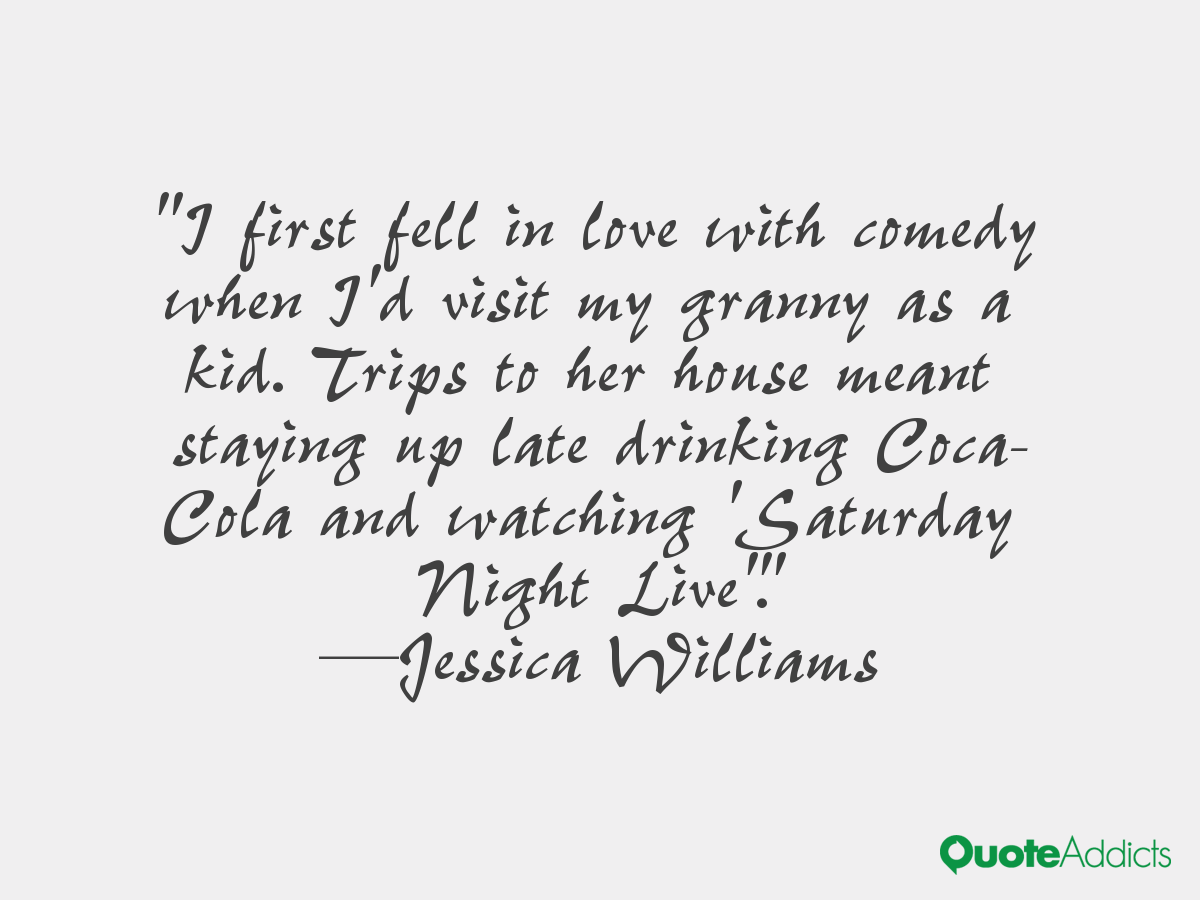 "I first fell in love with comedy
when I'd visit my granny as a
kid. Trips to her house meant
staying up late drinking Coca-
Cola and watching 'Saturday
Night Live'."
—Jessica Williams
QuoteAddicts